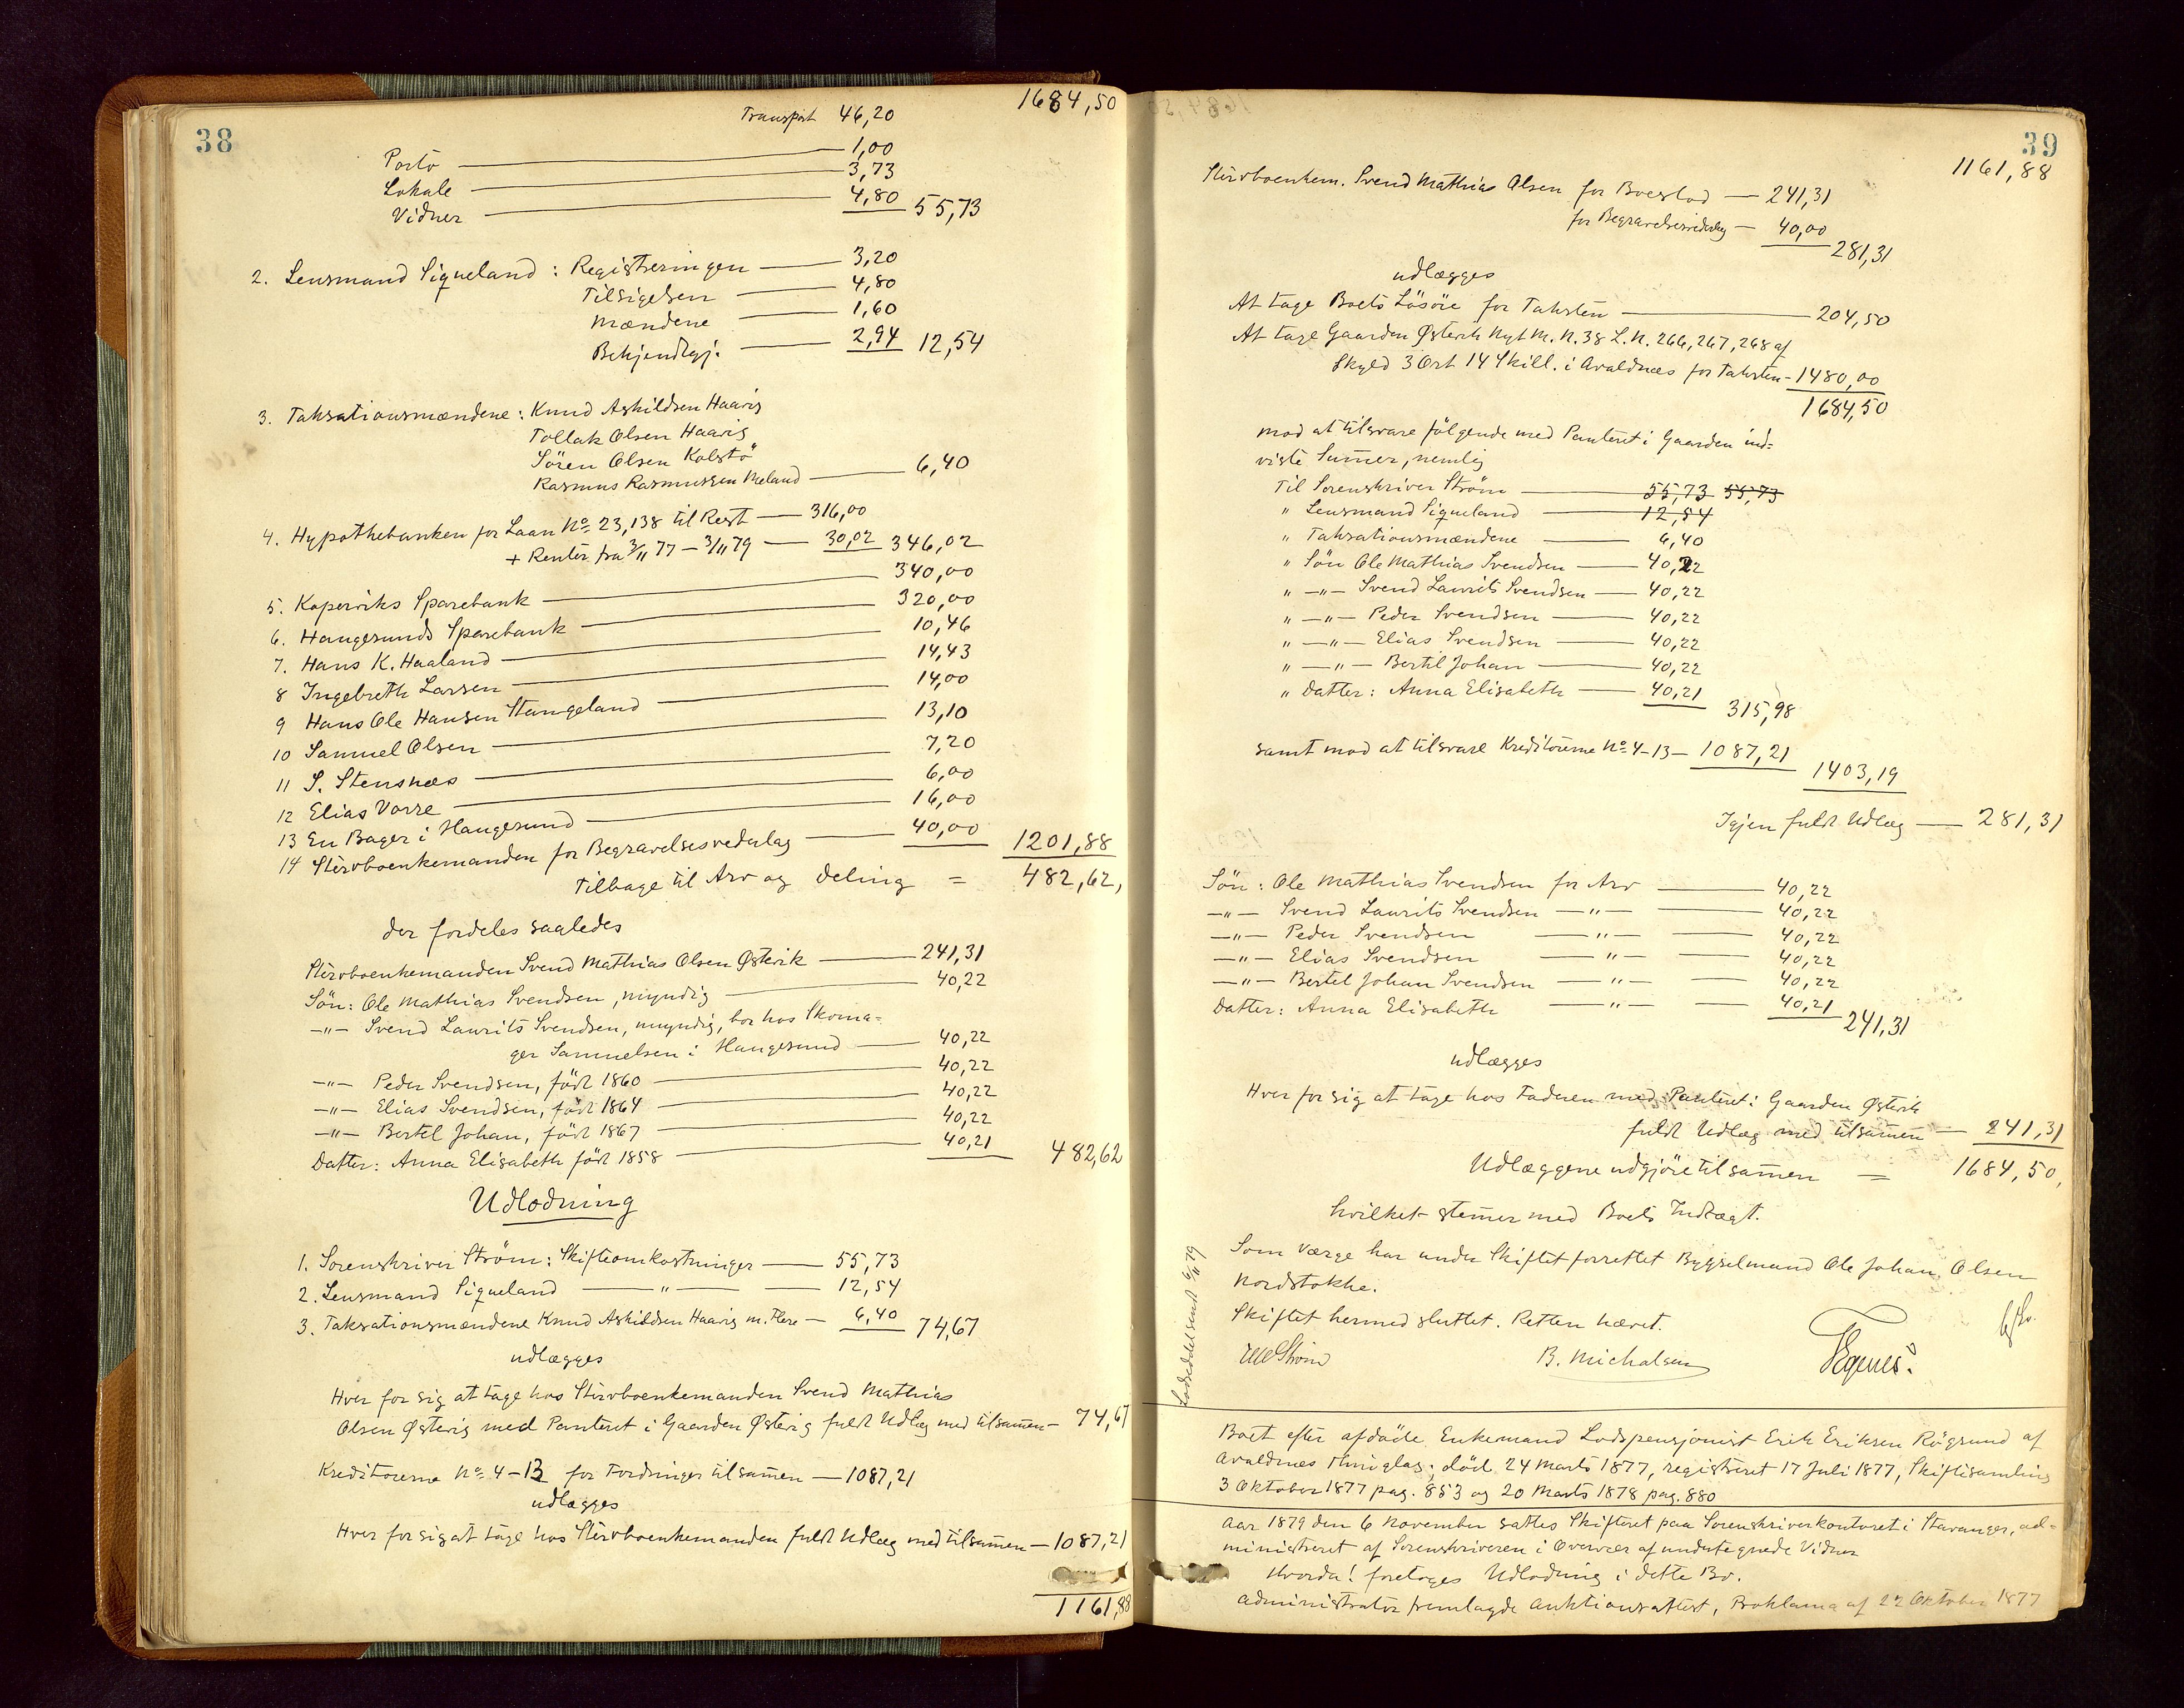 38
Transport 46,20 1684,50
Porto 1,00
Lokale 3,73
Vidner 4,80 55,73
2. Lensmand Siqueland: Registreringen 3,20
Tilsigelsen 4,80
Mændene 1,60
Bekjendtgj. 2,94 12,54
3. Taksationsmændene: Knud Askildsen Haavig
Tollak Olsen Haavig
Sören Olsen Kolstö
Rasmus Rasmussen Meland 6,40
4. Hypothebanken for Laan No 23,138 til Rest 316,00
+ Renter fra 3/11 77 – 3/11 79 30,02 346,02
5. Kopervíks Sparebank 340,00
6. Haugesunds Sparebank 320,00
7. Hans K. Haaland 10,46
8 Ingebreth Larsen 14,43
9 Hans Ole Hansen Stangeland 14,00
10 Samuel Olsen 13,10
11 S. Stensnæs 7,20
12 Elias Vorre 6,00
13 En Bager i Haugesund 16,00
14 Stervboenkemanden for Begravelsesvederlag 40,00 1201,88
Tilbage til Arv og Deling = 482,62,
der fordeles saaledes
Stervboenkemanden Svend Mathias Olsen Østevik 241,31
Sön: Ole Mathias Svendsen, myndig 40,22
—"— Svend Laurits Svendsen, umyndig, bor hos Skoma=
ger Samuelsen i Haugesund 40,22
—"— Peder Svendsen, född 1860 40,22
—"— Elias Svendsen, född 1864 40,22
—"— Bertel Johan, född 1867 40,22
Datter: Anna Elisabeth född 1858 40,21 482,62
Udlodning
1. Sorenskriver Ström: Skifteomkostninger 55,73
2. Lensmand Siqueland —"— 12,54
3. Taksationsmændene Knud Askildsen Haavig m. Flere 6,40 74,67
udlægges
Hver for sig at tage hos Stervboenkemanden Svend Mathias
Olsen Østevig med Panteret i Gaarden Østevig fuldt Udlæg med tilsamen 74,67
Kreditorerne No 4–13 for Fordringer tilsamen 1087,21
udlægges
Hver for sig at tage hos Stervboenkemanden fuldt Udlæg med tilsamen 1087,21
1161,88
39
1161,88
Stervboenkem. Svend Mathias Olsen for Boeslod 241,31
for Begravelsesvederlag 40,00
281,31
udlægges
At tage Boets Lösöre for Taksten 204,50
At tage Gaarden Østevik Nyt M. N. 38 L. N. 266, 267, 268 af
Skyld 3 Ort 14 Skill. i Avaldnæs for Taksten 1480,00
1684,50
mod at tilsvare fölgende med Panteret i Gaarden ind=
viste Sumer, nemlig
Til Sorenskriver Ström 55,73 55,73
" Lensmand Siqueland 12,54
" Taksationsmændene 6,40
" Sön Ole Mathias Svendsen 40,22
" —"— Svend Laurits Svendsen 40,22
" —"— Peder Svendsen 40,22
" —"— Elias Svendsen 40,22
" —"— Bertil Johan 40,22
" Datter: Anna Elisabeth 40,21
315,98
samt mod at tilsvare Kreditorerne No 4–13 1087,21
1403,19
Igjen fuldt Udlæg 281,31
Sön: Ole Mathias Svendsen for Arv 40,22
—"— Svend Laurits Svendsen —"— 40,22
—"— Peder Svendsen —"— 40,22
—"— Elias Svendsen —"— 40,22
—"— Bertel Johan Svendsen —"— 40,22
Datter: Anna Elisabeth —"— 40,21
241,31
udlægges
Hver for sig at tage hos Faderen med Panteret i Gaarden Østevik
fuldt Udlæg med tilsamen 241,31
Udlæggene udgjöre tilsamen = 1684,50,
hvilket stemer med Boets Indtægt.
Som Værge har under Skiftet forrettet Bygselmand Ole Johan Olsen
Nordstokke.
Skiftet hermed sluttet. Retten hævet.
Ström B. Michalsen
Boet efter afdöde Enkemand Lodspensjonist Erik Eriksen Rögsund af
Avaldnæs Thinglag; död 24 Marts 1877, registreret 17 Juli 1877, Skiftesamling
3 Oktober 1877 pag. 853 og 20 Marts 1878 pag. 880
Aar 1879 den 6 November sattes Skifteret paa Sorenskriverkontoret i Stavanger, ad=
ministreret af Sorenskriveren i Overvær af undertegnede Vidner
Hvorda! foretoges Udlodning i dette Bo.
Administrator fremlagde Auktionsattest, Proklama af 22 Oktober 1877